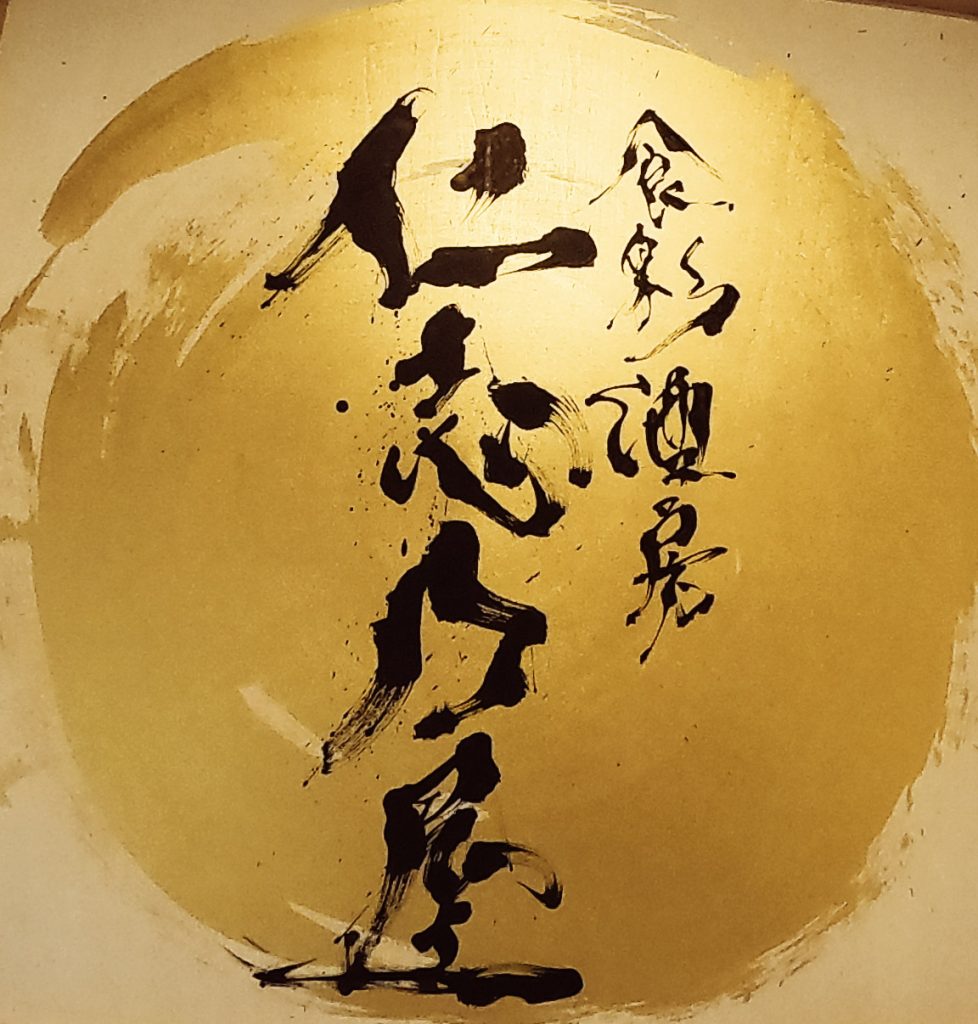 食彩酒房
仁志乃屋